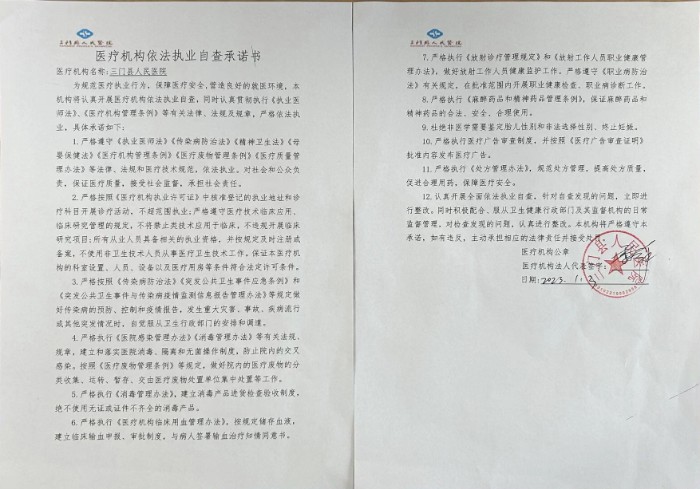 三门县人民医院
医疗机构依法执业自查承诺书
医疗机构名称:三门县人民医院
为规范医疗执业行为，保障医疗安全，营造良好的就医环境，本
机构将认真开展医疗机构依法执业自查，同时认真贯彻执行《执业医
师法》、《医疗机构管理条例》等有关法律、法规及规章，严格依法执
业。具体承诺如下：
1.严格遵守《执业医师法》《传染病防治法》《精神卫生法》《母
婴保健法》《医疗机构管理条例》《医疗废物管理条例》《医疗质量管理
办法》等法律、法规和医疗技术规范，依法执业，对社会和公众负
责，保证医疗质量，接受社会监督，承担社会责任。
2.严格按照《医疗机构执业许可证》中核准登记的执业地址和诊
疗科目开展诊疗活动，不超范围执业;严格遵守医疗技术临床应用、
临床研究管理的规定，不将禁止类技术应用于临床，不违规开展临床
研究项目;所有从业人员具备相关的执业资格，并按规定及时注册或
备案，不使用非卫生技术人员从事医疗卫生技术工作。保证本医疗机
构的科室设置、人员、设备以及医疗用房等条件符合法定许可条件。
3.严格按照《传染病防治法》《突发公共卫生事件应急条例》和
《突发公共卫生事件与传染病疫情监测信息报告管理办法》等规定做
好传染病的预防、控制和疫情报告。发生重大灾害、事故、疾病流行
或其他突发情况时，自觉服从卫生行政部门的安排和调遣。
4.严格按照《医院感染管理办法》《消毒管理办法》等有关法规、
规章，建立和落实医院消毒、隔离和无菌操作制度，防止院内的交叉
感染。按照《医疗废物管理条例》等规定，做好院内的医疗废物的分
类收集、运转、暂存、交由医疗废物处置单位集中处置等工作。
5.严格执行《消毒管理办法》，建立消毒产品进货检查验收制度，
绝不使用无证或证件不齐全的消毒产品。
6.严格执行《医疗机构临床用血管理办法》，按规定储存血液，
建立临床输血申报、审批制度，与病人签署输血治疗知情同意书。
三门县人民医院
7.严格执行《放射诊疗管理规定》和《放射工作人员职业健康管
理办法》，做好放射工作人员健康监护工作。严格遵守《职业病防治
法》有关规定，在批准范围内开展职业健康检查、职业病诊断工作。
8.严格执行《麻醉药品和精神药品管理条例》，保证麻醉药品和
精神药品的合法、安全、合理使用。
9.杜绝非医学需要鉴定胎儿性别和非法选择性别、终止妊娠。
10.严格执行医疗广告审查制度，并按照《医疗广告审查证明》
批准内容发布医疗广告。
11.严格执行《处方管理办法》，规范处方管理，提高处方质量，
促进合理用药，保障医疗安全。
12.认真开展全面依法执业自查，针对自查发现的问题，立即进
行整改。同时积极配合、服从卫生健康行政部门及其监督机构的日常
监督管理，对检查发现的问题，认真进行整改。本机构将严格遵守本
承诺，如有违反，主动承担相应的法律责任并接受处
医疗机构公章
医疗机构法人代表签字:
日期:2023.1.20
三门县人民医院